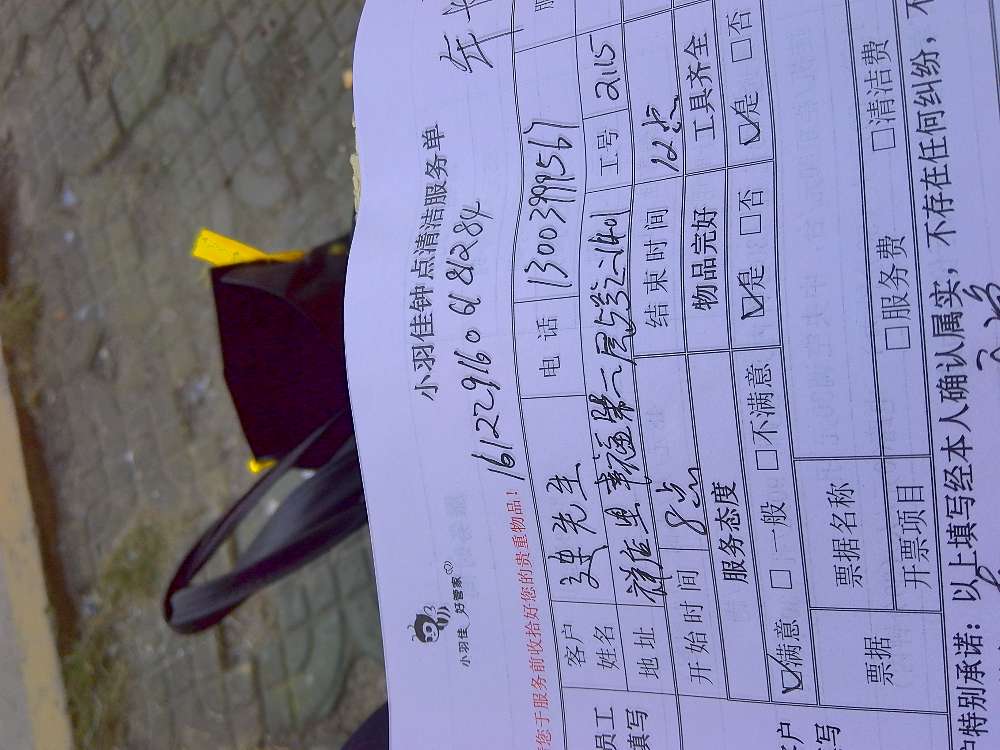 小羽佳 好管家
小羽佳钟点清洁服务单
161229160618284
年
您于服务前收拾好您的贵重物品!
员工
填写
客户
姓名
先生
电话
13003999567
地址
幸福第二
2-1401
工号
2115
开始时间
8点
结束时间
12点
服务态度
物品完好
工具齐全
☑满意 □一般 □不满意
☑是 □否
☑是 □否
票据
票据名称
开票项目
□服务费
□清洁费
户特别承诺:以上填写经本人确认属实,不存在任何纠纷,